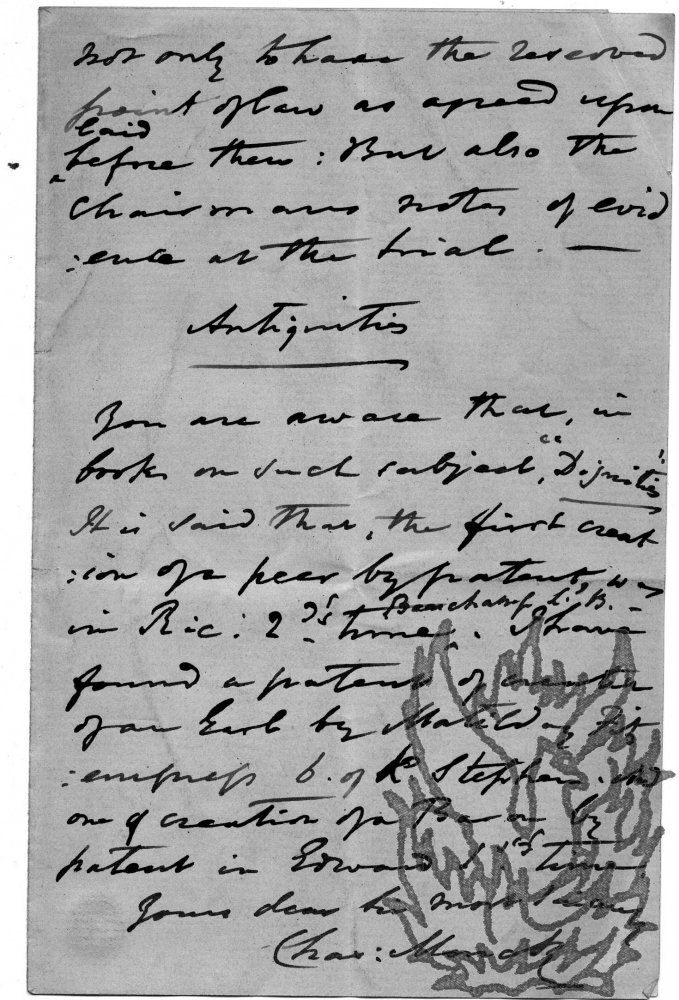 not only to have the reserved
point of law as agreed upon
laid
before them: But also the
Chairmans notes of evid
:ence at the trial. —
Antiquities
You are aware that, in
books on such subject, "Dignities"
It is said that, the first creat
:ion of a peer by patent, was
Beauchamp
in Ric: 2d's time. I have
found a patent of creation
of an Earl by Matilda
:empress of K Stephen. And
one of creation of a Baron by
patent in Edward 1st time.
Yours dear Sir most
Chas: